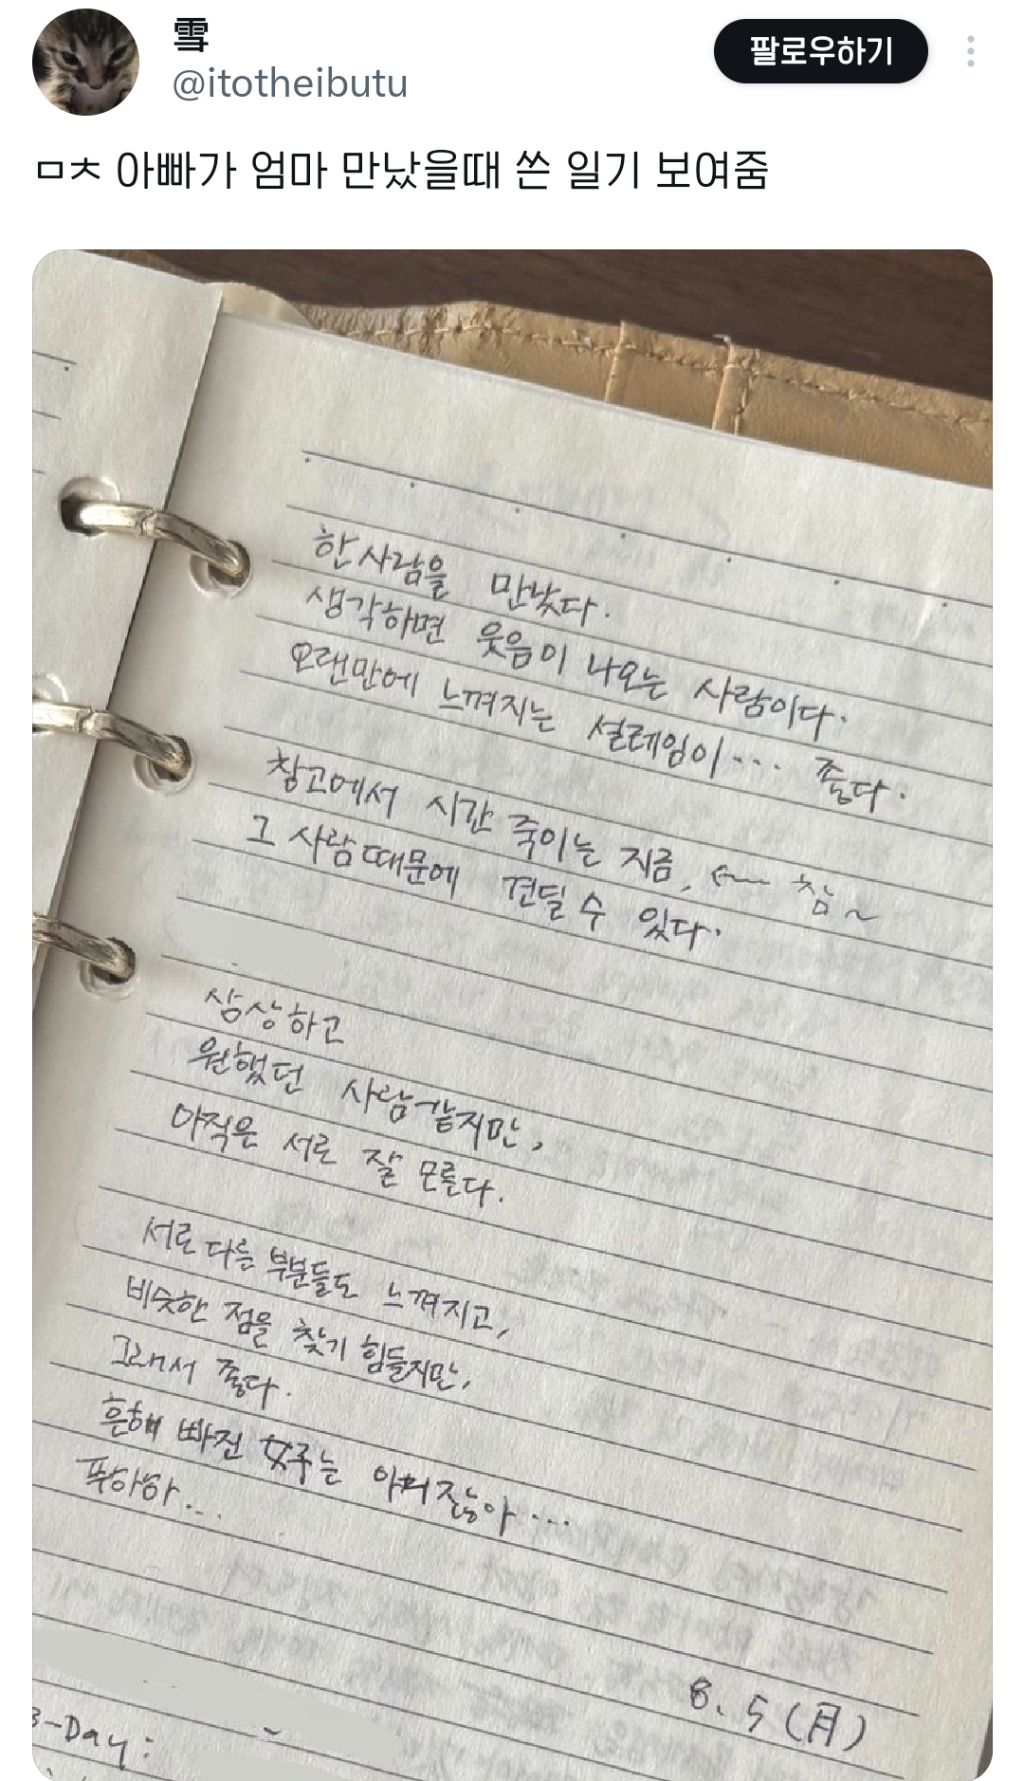 雪
@itotheibutu
팔로우하기
ㅁㅊ 아빠가 엄마 만났을때 쓴 일기 보여줌
한 사람을 만났다.
생각하면 웃음이 나오는 사람이다.
오랜만에 느껴지는 설레임이... 좋다.
창고에서 시간 죽이는 지금, ← 참~
그 사람 때문에 견딜 수 있다.
상상하고
원했던 사람 같지만,
아직은 서로 잘 모른다.
서로 다른 부분들도 느껴지고,
비슷한 점을 찾기 힘들지만,
그래서 좋다.
흔해 빠진 女주는 아니잖아...
푸하하...
8. 5 (月)
B-Day: